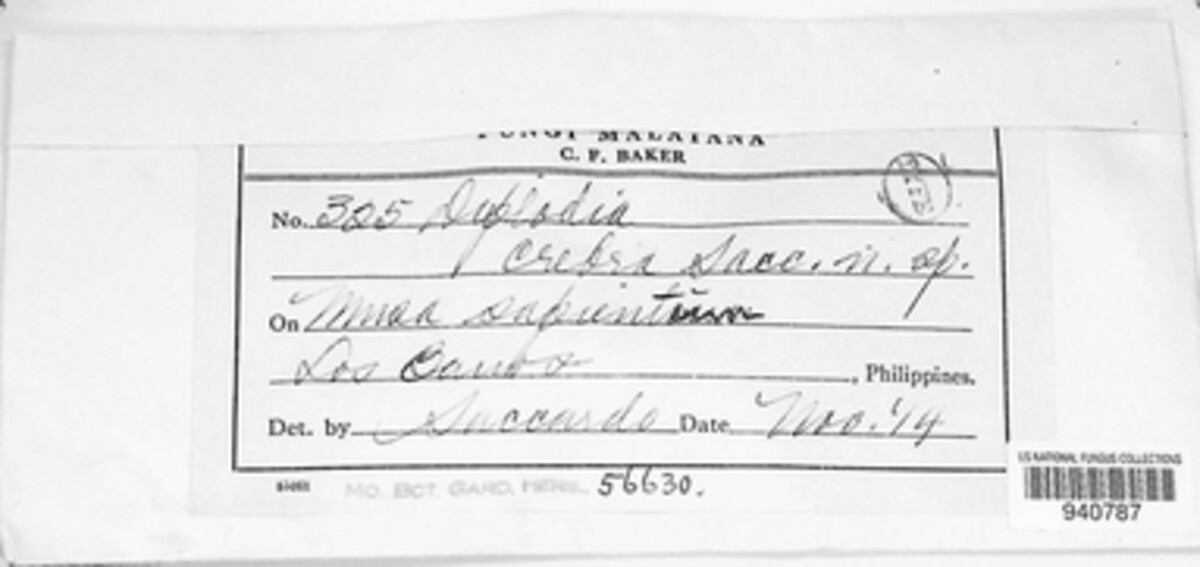 FUNGI MALAYANA
C. F. BAKER
No. 305 Diplodia
crebra Sacc. n. sp.
On Musa sapientum
Los Banos, Philippines.
Det. by Saccardo Date Nov. '14
MO. BOT. GARD. HERB. 56630.
US NATIONAL FUNGUS COLLECTIONS
940787